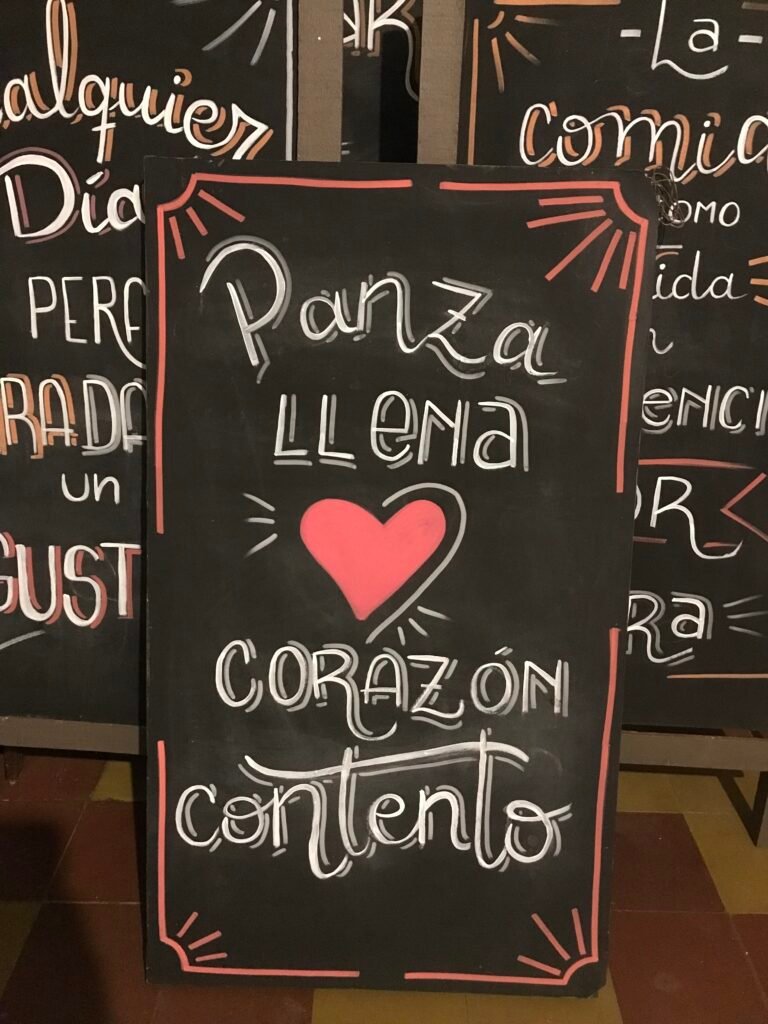 Panza
LLENA
CORAZÓN
contento
alquier
Día
PERA
RADA
un
GUST
La
comid
omo
ida
enci
OR
Ra